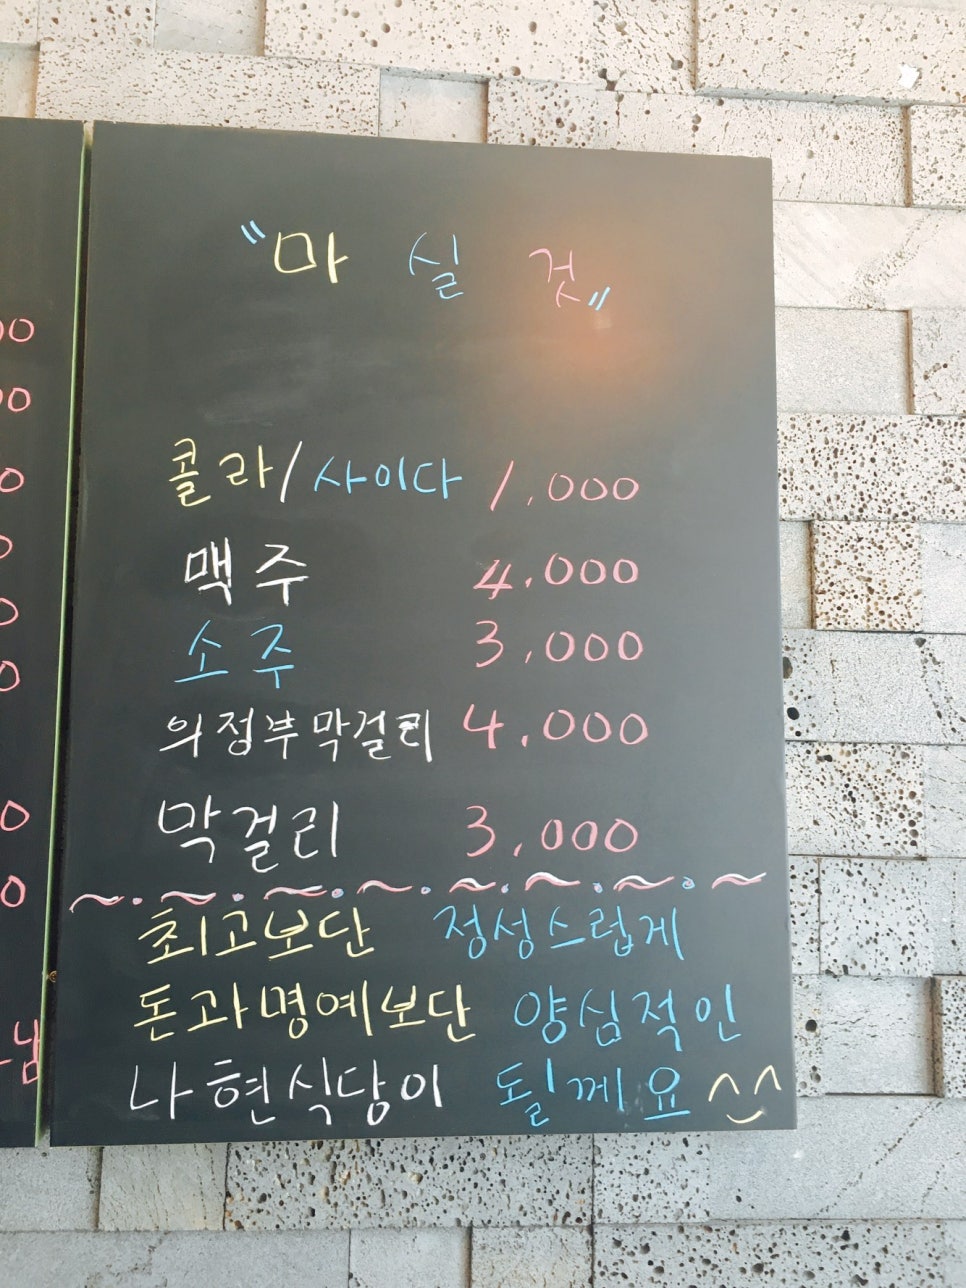 "마 실 것"
콜라/사이다 1,000
맥주 4,000
소주 3,000
의정부막걸리 4,000
막걸리 3,000
최고보단 정성스럽게
돈과명예보단 양심적인
나현식당이 될께요 ^^